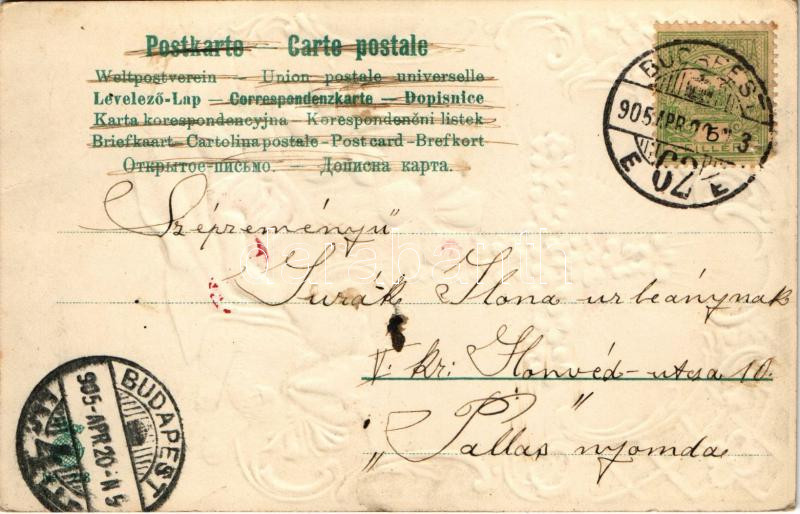 Postkarte — Carte postale
Weltpostverein — Union postale universelle
Levelező-Lap — Correspondenzkarte — Dopisnice
Karta korespondencyjna — Korespondenčni listek
Briefkaart - Cartolina postale - Post card - Brefkort
Открытое-письмо. — Дописна карта.
BUDAPEST
905 APR 20
E 62 E
Szépreményű
Turák Ilona urleánynak
V. kr: Honvéd-utsa 10.
„Pallas" nyomda
BUDAPEST
905 APR 20 N5
darabanth